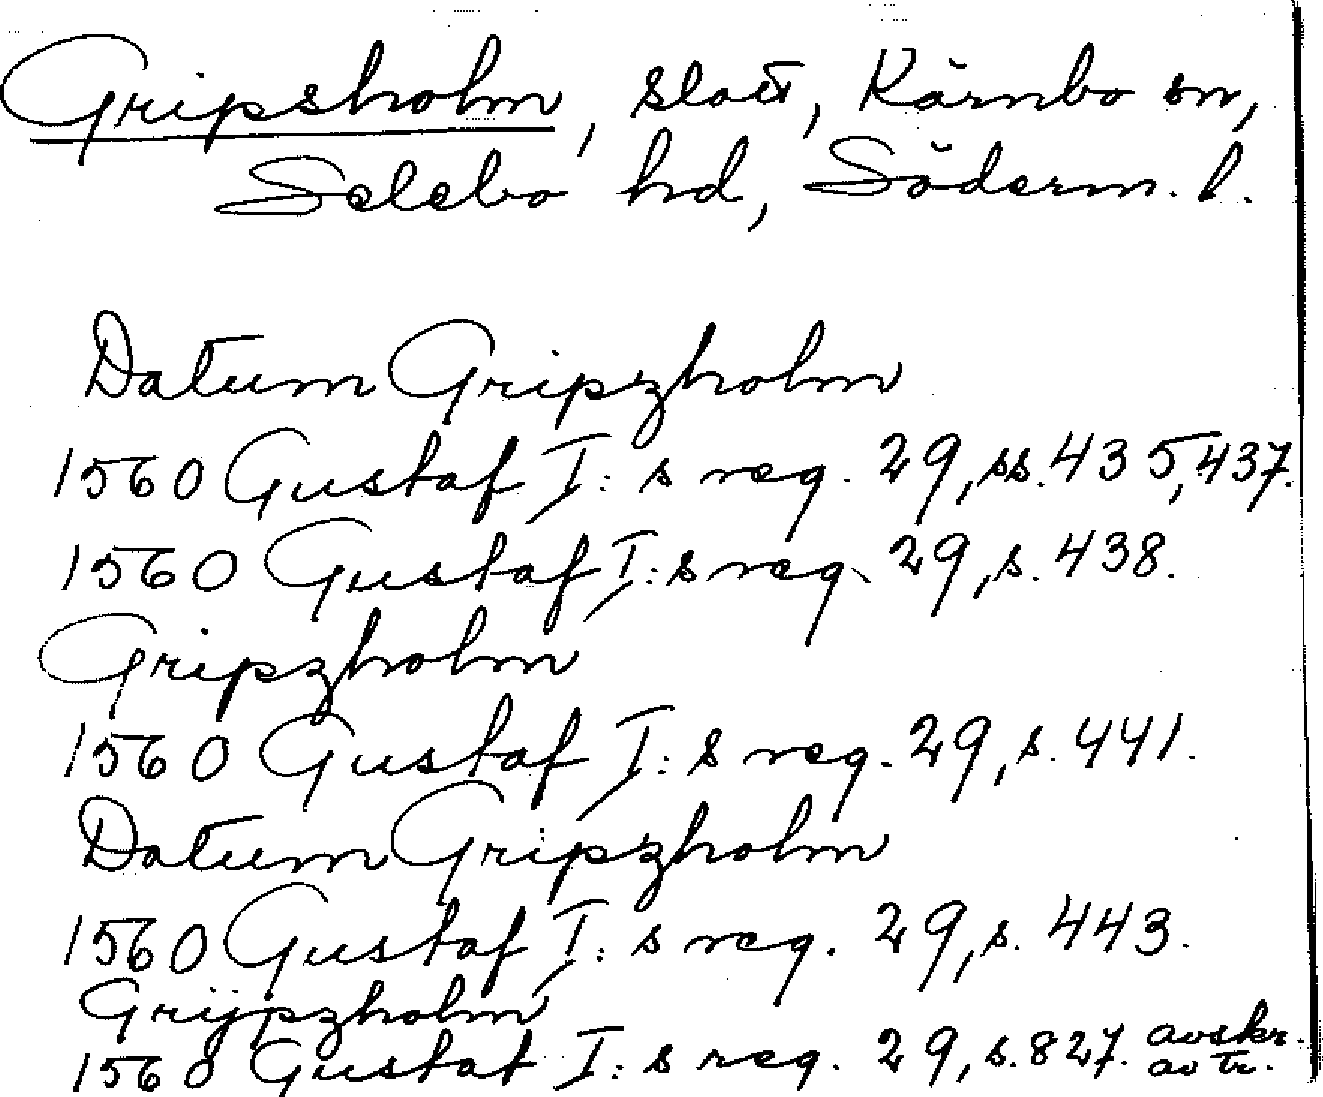 Gripsholm, slott, Kärnbo sn,
Selebo hd, Söderm. l.
Datum Gripzholm
1560 Gustaf I: s reg. 29, ss. 435, 437.
1560 Gustaf I: s reg. 29, s. 438.
Gripzholm
1560 Gustaf I: s reg. 29, s. 441.
Datum Gripzholm
1560 Gustaf I: s reg. 29, s. 443.
Grijpzholm
1560 Gustaf I: s reg. 29, s. 827. avskr.
av tr.